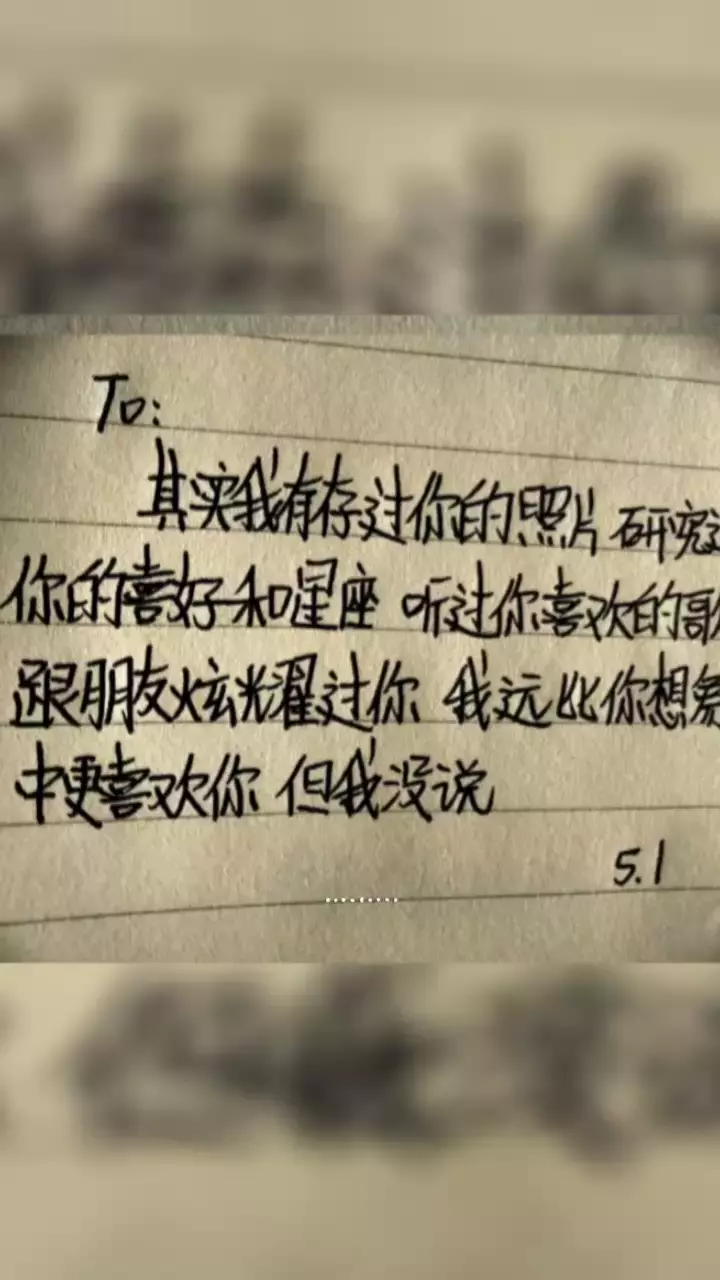 To:
其实我有存过你的照片 研究过
你的喜好和星座 听过你喜欢的歌
还跟朋友炫耀过你 我远比你想象
中更喜欢你 但我没说
5.1
..........